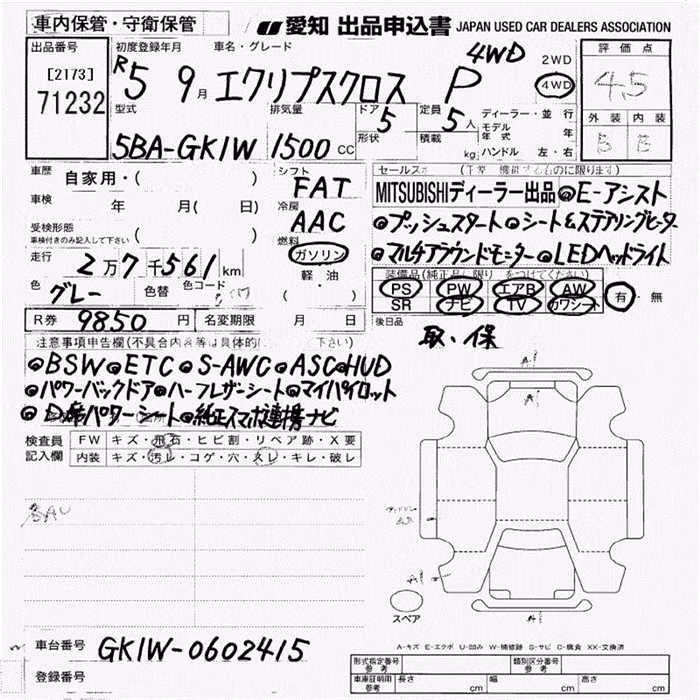 車内保管・守衛保管
愛知 出品申込書 JAPAN USED CAR DEALERS ASSOCIATION
出品番号 初度登録年月 車名・グレード
[2173]
71232
R5 9月 エクリプスクロス P 4WD
2WD
4WD
評価点
4.5
外装 内装
B B
型式 排気量 ドア 5 定員 5人
形状 積載 kg
5BA-GK1W 1500 CC
ディーラー・並行
モデル年式 年
ハンドル 左・右
車歴 自家用・( )
車検 年 月(日)
受検形態
車検付きのみ記入して下さい ( )
走行 2万7千561km
色 グレー 色替 色コード
R券 9850円 名変期限 月 日
シフト
FAT
冷房
AAC
燃料
ガソリン
軽油
( )
MITSUBISHIディーラー出品 ●E-アシスト
●プッシュスタート ●シート&ステアリングヒーター
●マルチアラウンドモニター ●LEDヘッドライト
PS PW エアB AW
SR ナビ TV カワシート
有・無
後日品
取・保
注意事項申告欄
●BSW ●ETC ●S-AWC ●ASC ●HUD
●パワーバックドア ●ハーフレザーシート ●マイパイロット
●D席パワーシート ●純正スマホ連携ナビ
検査員記入欄
FW キズ・飛石・ヒビ割・リペア跡・X要
内装 キズ・汚レ・コゲ・穴・スレ・キレ・破レ
スペア
A-キズ E-エクボ U-凹み W-補修跡 S-サビ C-腐食 XX-交換済
車台番号 GK1W-0602415
登録番号
形式指定番号 参考 類別区分番号 参考
車庫証明用 参考 長さ cm 幅 cm 高さ cm